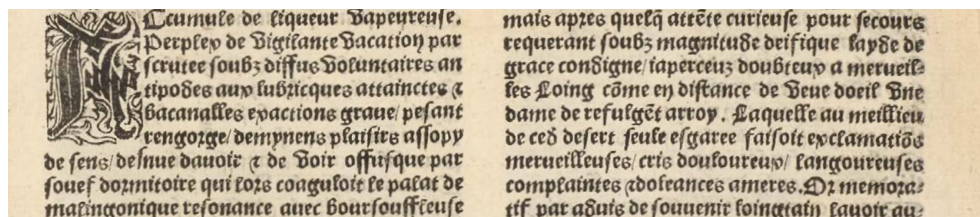 Accumule de liqueur vapeureuse.
Perplex de vigilante vacation par
scrutee soubz diffus voluntaires an
tipodes aux lubricques attainctes ⁊
bacanalles exactions graue/pesant
rengorge/demynens plaisirs assopy
de sens/desnue dauoir ⁊ de voir offusque par
souef dormitoire qui lors coaguloit le palat de
malingonique resonance auec boursouffleuse
mais apres quelq̃ attẽte curieuse pour secours
requerant soubz magnitude deifique layde de
grace condigne/iaperceuz doubteux a merueil-
les Loing cõme en distance de veue doeil vne
dame de refulgẽt arroy. Laquelle au meillieu
de ced desert seule esgaree faisoit exclamatiõs
merueilleuses/cris douloureux/ langoureuses
complaintes ⁊doleances ameres.Or memora-
tif par aduis de souuenir loingtain lauoir au-